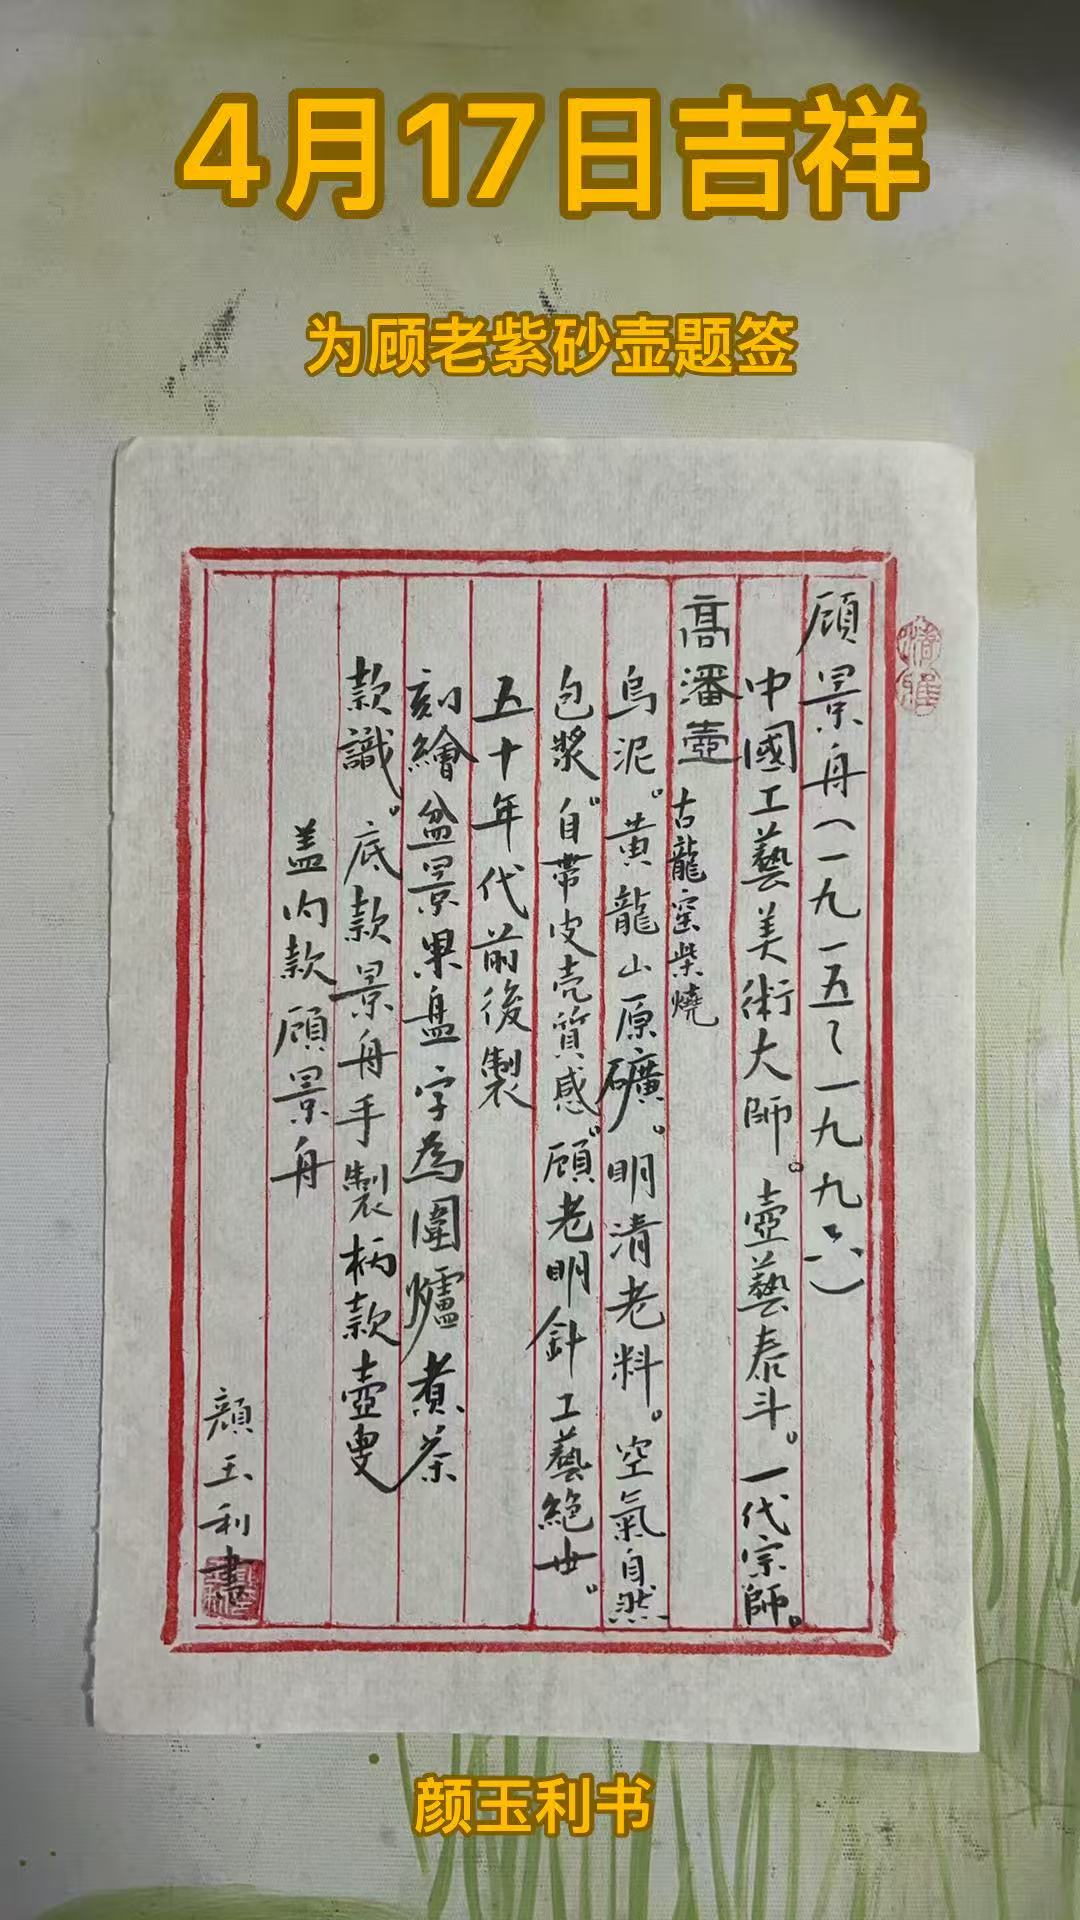 4月17日吉祥
为顾老紫砂壶题签
顾景舟（一九一五～一九九六）
中國工藝美術大師。壺藝泰斗。一代宗師。
高潘壺 古龍窑柴燒
烏泥。黄龍山原礦。明清老料。空氣自然
包漿。自带皮壳質感。顾老明針工藝絕世。
五十年代前後製
刻繪盆景果盘字為圍爐煮茶
款識。底款景舟手製柄款壺叟
盖内款顾景舟
顏玉利書
颜玉利书